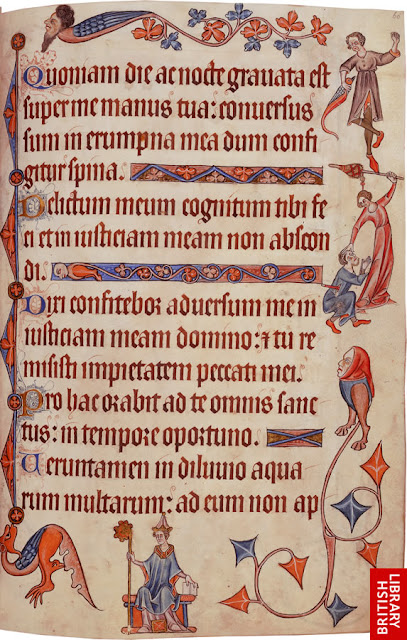 60
Quoniam die ac nocte gravata est
super me manus tua: conversus
sum in erumpna mea dum confi
gitur spina.
Delictum meum cognitum tibi fe
ci et in iusticiam meam non abscon
di.
Dixi confitebor adversum me in
iusticiam meam domino: & tu re
misisti impietatem peccati mei.
Pro hac orabit ad te omnis sanc
tus: in tempore oportuno.
Veruntamen in diluvio aqua
rum multarum: ad eum non ap
BRITISH
LIBRARY